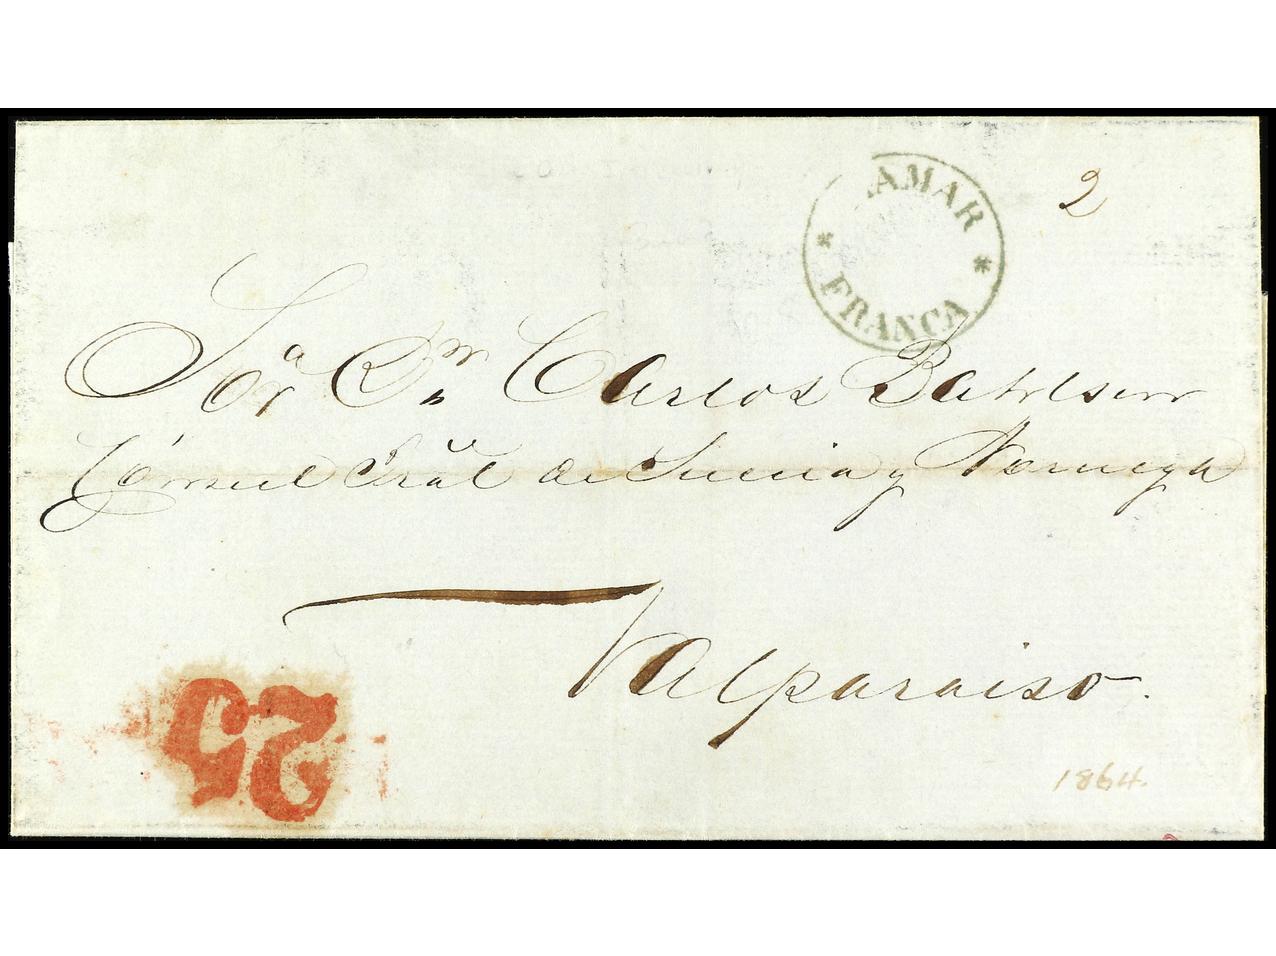 AMAR
* *
FRANCA
2
Sor Dn Carlos Bahlsen
Cónsul Grãl de Suecia y Noruega
Valparaiso.
25
1864.